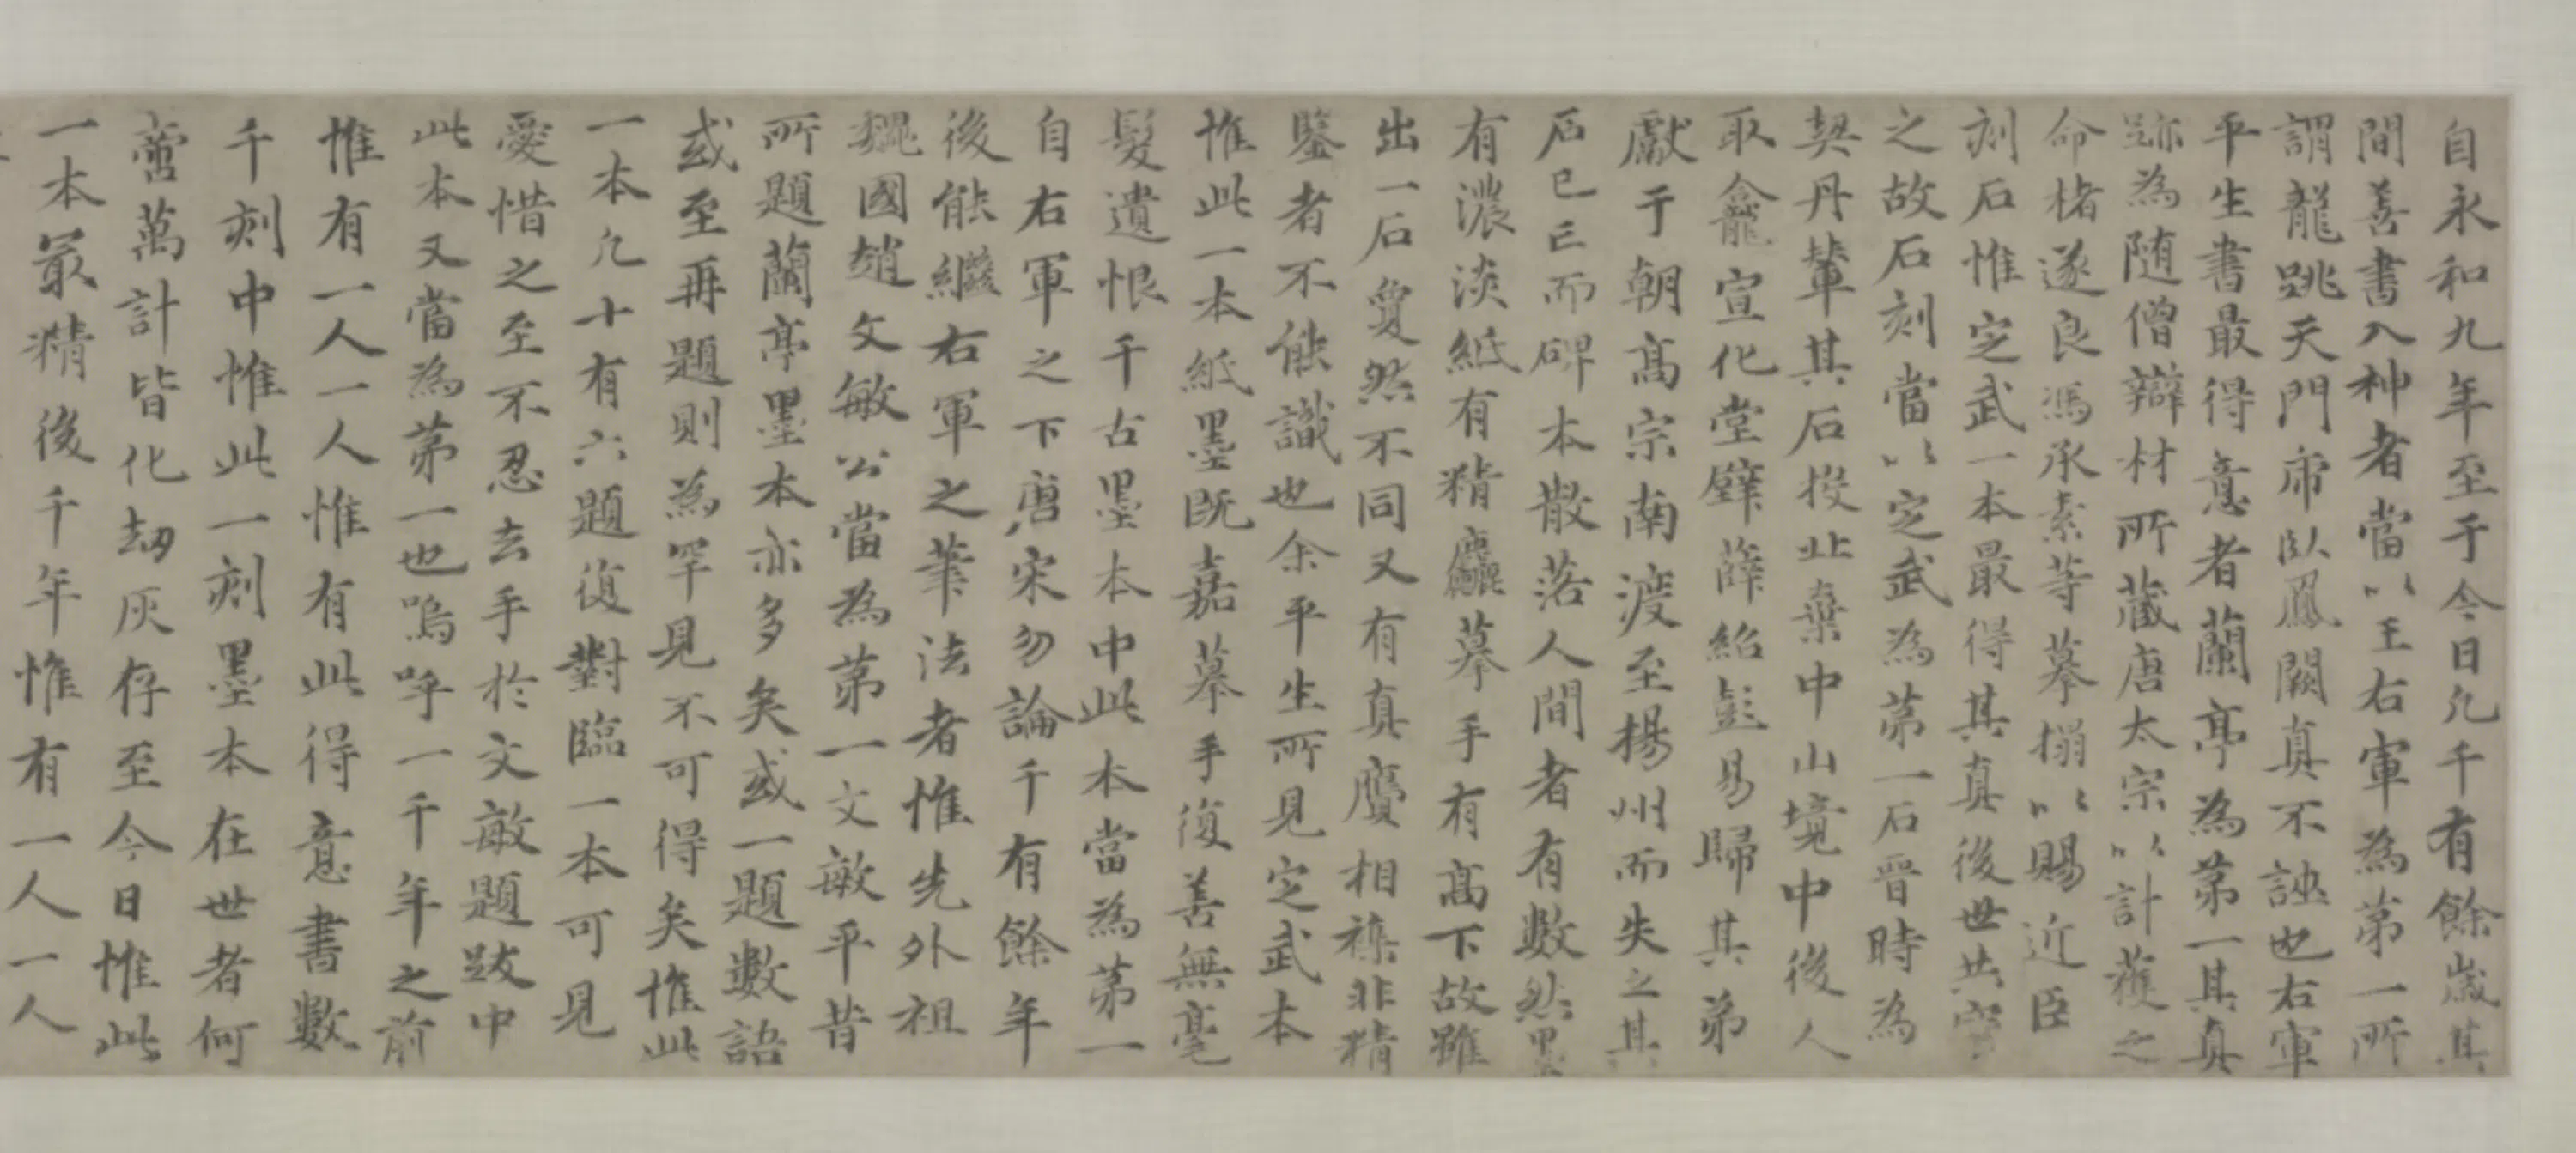 自永和九年至于今日凡千有餘歲其
間善書入神者當以王右軍為第一所
謂龍跳天門帝臥鳳闕真不誣也右軍
平生書最得意者蘭亭為第一其真
跡為隨僧辯材所藏唐太宗以計獲之
命楮遂良馮承素等摹搨以賜近臣
刻石惟定武一本最得其真後世共寶
之故石刻當以定武為第一石晉時為
契丹輦其石投北棄中山境中後人
取龕宣化堂壁薛紹彭易歸其弟
獻于朝高宗南渡至楊州而失之其
石已亡而碑本散落人間者有數然墨
有濃淡紙有精麤摹手有高下故雖
出一石夐然不同又有真贗相襍非精
鑒者不能識也余平生所見定武本
惟此一本紙墨既嘉摹手復善無毫
髮遺恨千古墨本中此本當為第一
自右軍之下唐宋勿論千有餘年
後能繼右軍之筆法者惟先外祖
魏國趙文敏公當為第一文敏平昔
所題蘭亭墨本亦多矣或一題數語
或至再題則為罕見不可得矣惟此
一本凡十有六題復對臨一本可見
愛惜之至不忍去手於文敏題跋中
此本又當為第一也嗚呼一千年之前
惟有一人一人惟有此得意書數
千刻中惟此一刻墨本在世者何
啻萬計皆化劫灰存至今日惟此
一本最精後千年惟有一人一人